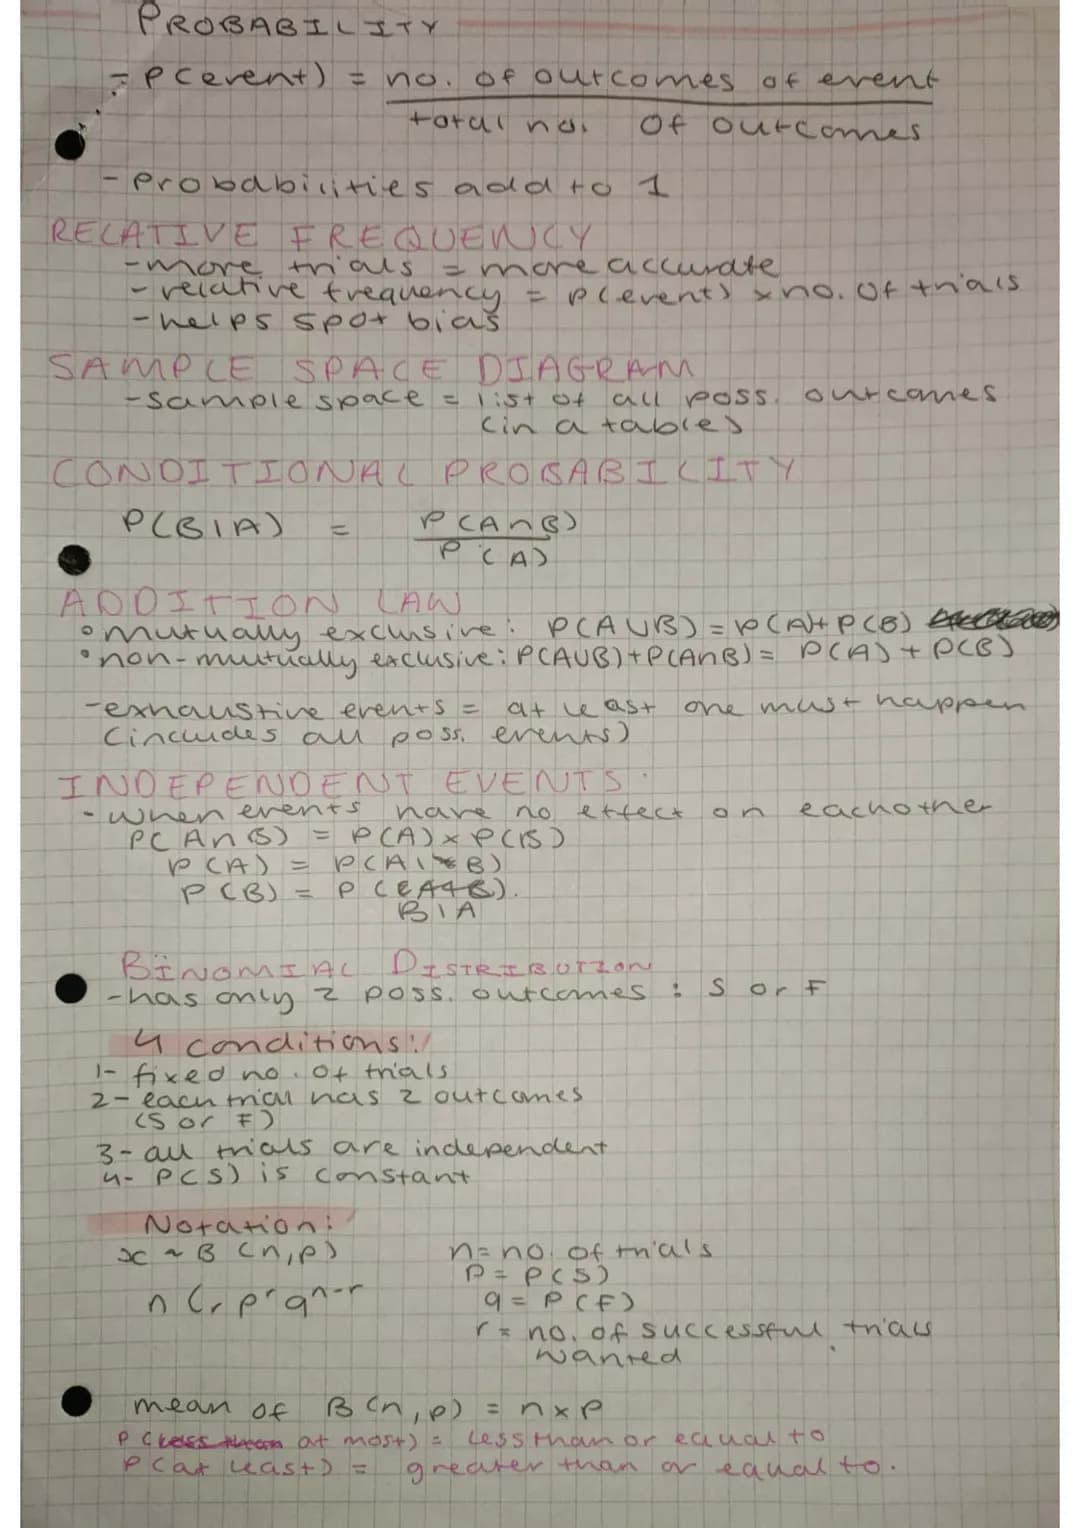 PROBABILITY
- P(event) = no. of outcomes of event
total no. of outcomes
- Probabilities add to 1
RELATIVE FREQUENCY
- more trials = more accurate
- relative frequency = P(event) x no. of trials
- helps spot bias
SAMPLE SPACE DIAGRAM
- sample space = list of all poss. outcomes
(in a table)
CONDITIONAL PROBABILITY
P(B|A) = P(A∩B)
P(A)
ADDITION LAW
• mutually exclusive: P(A∪B) = P(A)+P(B)
• non-mutually exclusive: P(A∪B)+P(A∩B) = P(A)+P(B)
- exhaustive events = at least one must happen
(includes all poss. events)
INDEPENDENT EVENTS
- when events have no effect on eachother
P(A∩B) = P(A) x P(B)
P(A) = P(A|B)
P(B) = P(
B|A
).
BINOMIAL DISTRIBUTION
- has only 2 poss. outcomes : S or F
4 conditions:
1- fixed no. of trials
2- each trial has 2 outcomes
(S or F)
3- all trials are independent
4- P(S) is constant
Notation:
x ~ B (n,p)
n = no. of trials
p = P(S)
nCr p^r q^n-r
q = P(F)
r = no. of successful trials
wanted
mean of B(n,p) = n x p
P(less than at most) = less than or equal to
P(at least) = greater than or equal to.